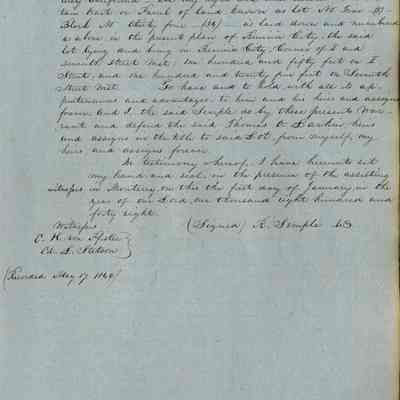 tain tract or Parcel of land known as lot No Four (4)
Block No thirty four (34) as laid down and numbered
as above in the present plan of Benicia City, the said
lot lying and being in Benicia City, Corner of I and
seventh Street West, one hundred and fifty feet on I
Street, and one hundred and twenty five feet on Seventh
Street West. To have and to hold with all its ap-
purtenances and advantages to him and his heirs and assigns
forever. And I, the said Semple do by these presents War-
rant and defend the said Thomas O. Larkin, heirs
and assigns in the title to said Lot, from myself, my
heirs and assigns forever.
In testimony whereof, I have hereunto set
my hand and seal, in the presence of the assisting
witnesses in Monterey, on this the first day of January, in the
year of our Lord, one thousand eight hundred and
forty eight.
Witness (Signed) R. Semple
C. R. von Pfister
Ed. L. Stetson
(Recorded May 17